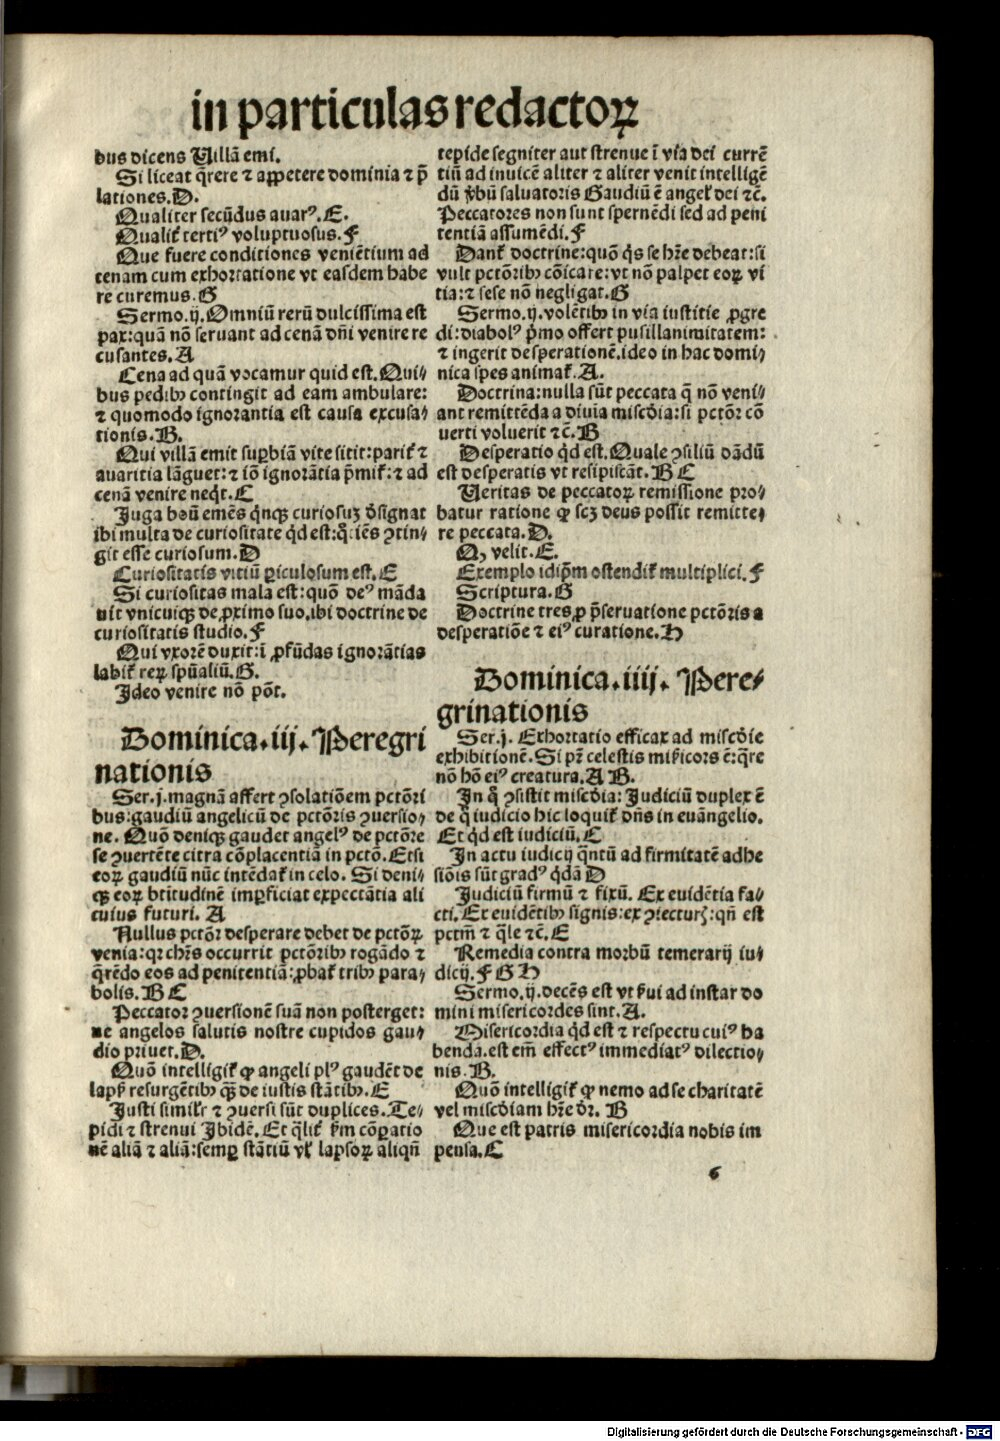 in particulas redactoꝝ
bus dicens Uillā emi.
Si liceat q̄rere ⁊ appetere dominia ⁊ p̄
lationes. D.
Qualiter secūdus auarꝰ. E.
Qualiť tertiꝰ voluptuosus. F
Que fuere conditiones veniētium ad
cenam cum exhortatione vt easdem habe
re curemus. G
Sermo .ij. Omniū rerū dulcissima est
pax: quā nō seruant ad cenā dn̄i venire re
cusantes. A
Cena ad quā vocamur quid est. Qui⸗
bus pedibꝫ contingit ad eam ambulare:
⁊ quomodo ignorantia est causa excusa⸗
tionis. B.
Qui villā emit suꝑbiā vite sitit: pariť ⁊
auaritia lāguet: ⁊ iō ignorātia p̄miť: ⁊ ad
cenā venire neq̇t. C
Juga boū emēs q̇nqꝫ curiosuꝫ d̓signat
ibi multa de curiositate q̇d est: q̄ iēs ꝯtin⸗
git esse curiosum. D
Curiositatis vitiū ꝑiculosum est. E
Si curiositas mala est: quō deꝰ māda
uit vnicuiqꝫ de ꝓximo suo. ibi doctrine de
curiositatis studio. F
Qui vxorē duxit: ī ꝓfūdas ignorātias
labiť reꝝ spūaliū. G.
Ideo venire nō pōt.
Dominica .iij. Peregri
nationis
Ser. j. magnā affert ꝯsolatiōem pctōri
bus: gaudiū angelicū de pctōris ꝯuersio⸗
ne. Quō deniqꝫ gaudet angelꝰ de pctōre
se ꝯuertēte citra cōplacentiā in pctō. Etsi
eoꝝ gaudiū nūc intēdať in celo. Si deni⸗
qꝫ eoꝝ btitudinē imꝑficiat expectātia ali
cuius futuri. A
Nullus pctōr desperare debet de pctōꝝ
venia: qꝛ chr̄s occurrit pctōribꝫ rogādo ⁊
q̄rēdo eos ad penitentiā: ꝓbať tribꝫ para⸗
bolis. B C
Peccator ꝯuersionē suā non posterget:
ne angelos salutis nostre cupidos gau⸗
dio priuet. D.
Quō intelligiť ꝙ angeli plꝰ gaudēt de
lapẜ resurgētibꝫ qꝫ̄ de iustis stātibꝫ. E
Justi simiłr ⁊ ꝯuersi sūt duplices. Te⸗
pidi ⁊ strenui Ibidē. Et q̄liť ẜm cōꝑatio
nē aliā ⁊ aliā: semꝑ stātiū vł lapsoꝝ aliqn̄
tepide segniter aut strenue ī via dei currē
tiū ad inuicē aliter ⁊ aliter venit intelligē
dū v̓bū saluatoris Gaudiū ē angeł dei ⁊c̄.
Peccatores non sunt spernēdi sed ad peni
tentiā assumēdi. F
Danť doctrine: quō q̇s se hr̄e debeat: si
vult pctōribꝫ cōicare: vt nō palpet eoꝝ vi
tia: ⁊ sese nō negligat. G
Sermo .ij. volētibꝫ in via iustitie ꝓgre
di: diabolꝰ p̓mo offert pusillanimitatem:
⁊ ingerit desperationē. ideo in hac domi⸗
nica spes animať. A.
Doctrina: nulla sūt peccata q̄ nō veni⸗
ant remittēda a diuia misc̓dia: si pctōr cō
uerti voluerit ⁊c̄. B
Desperatio q̇d est. Quale ꝯsiliū dādū
est desperatis vt resipiscāt. B C
Ueritas de peccatoꝝ remissione pro⸗
batur ratione ꝙ scꝫ deus possit remitte⸗
re peccata. D.
Qꝫ velit. E.
Exemplo idip̄m ostendiť multiplici. F
Scriptura. G
Doctrine tres ꝓ p̄seruatione pctōris a
desperatiōe ⁊ eiꝰ curatione. H
Dominica .iiij. Pere⸗
grinationis
Ser. j. Exhortatio efficax ad misc̓die
exhibitionē. Si pr̄ celestis mīcors ē: q̄re
nō hō eiꝰ creatura. A B.
In q̊ ꝯsistit misc̓dia: Judiciū duplex ē
de q̊ iudicio hic loquiť dn̄s in euāngelio.
Et q̇d est iudiciū. C
In actu iudicij q̄ntū ad firmitatē adhe
siōis sūt gradꝰ q̇dā D
Judiciū firmū ⁊ fixū. Ex euidētia fa⸗
cti. Ex euidētibꝫ signis: ex ꝯiecturꝭ: qn̄ est
pctm̄ ⁊ q̄le ⁊c̄. E
Remedia contra morbū temerarij iu⸗
dicij. F G H
Sermo .ij. decēs est vt ẜui ad instar do
mini misericordes sint. A.
Misericordia q̇d est ⁊ respectu cuiꝰ ha
benda. est em̄ effectꝰ immediatꝰ dilectio⸗
nis. B.
Quō intelligiť ꝙ nemo ad se charitatē
vel misc̓diam hr̄e dr̄. B
Que est patris misericordia nobis im
pensa. C
6
Digitalisierung gefördert durch die Deutsche Forschungsgemeinschaft - DFG